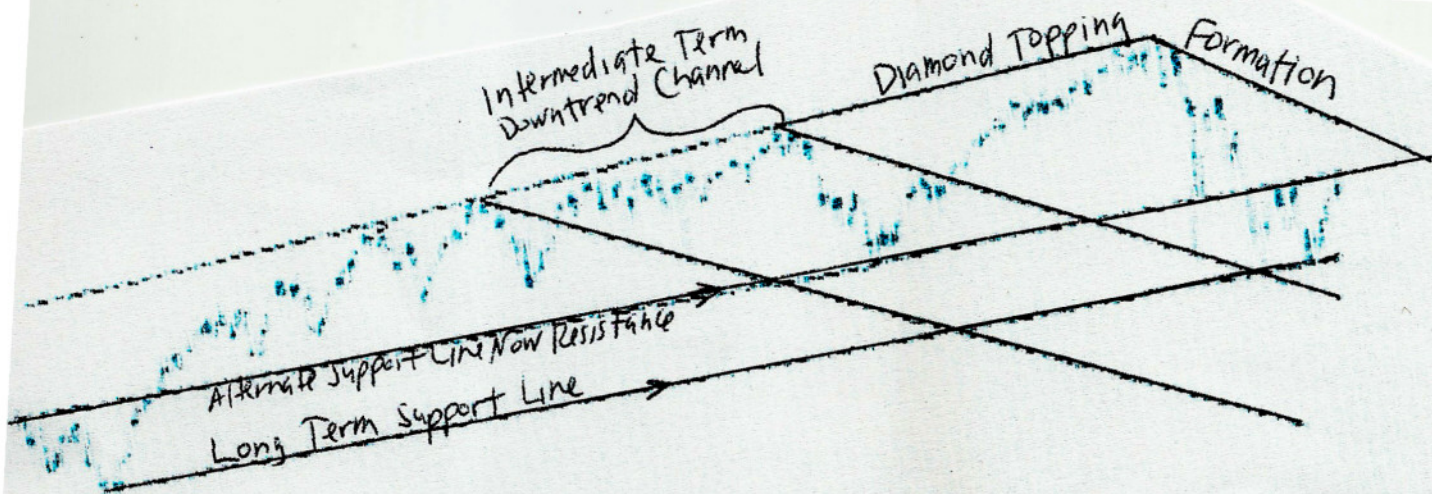 Intermediate Term
Downtrend Channel
Diamond Topping Formation
Alternate Support Line Now Resistance
Long Term Support Line